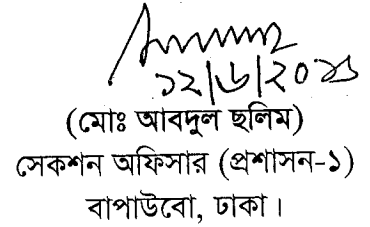 ১২/৬/২০১১
(মোঃ আবদুল ছলিম)
সেকশন অফিসার (প্রশাসন-১)
বাপাউবো, ঢাকা।